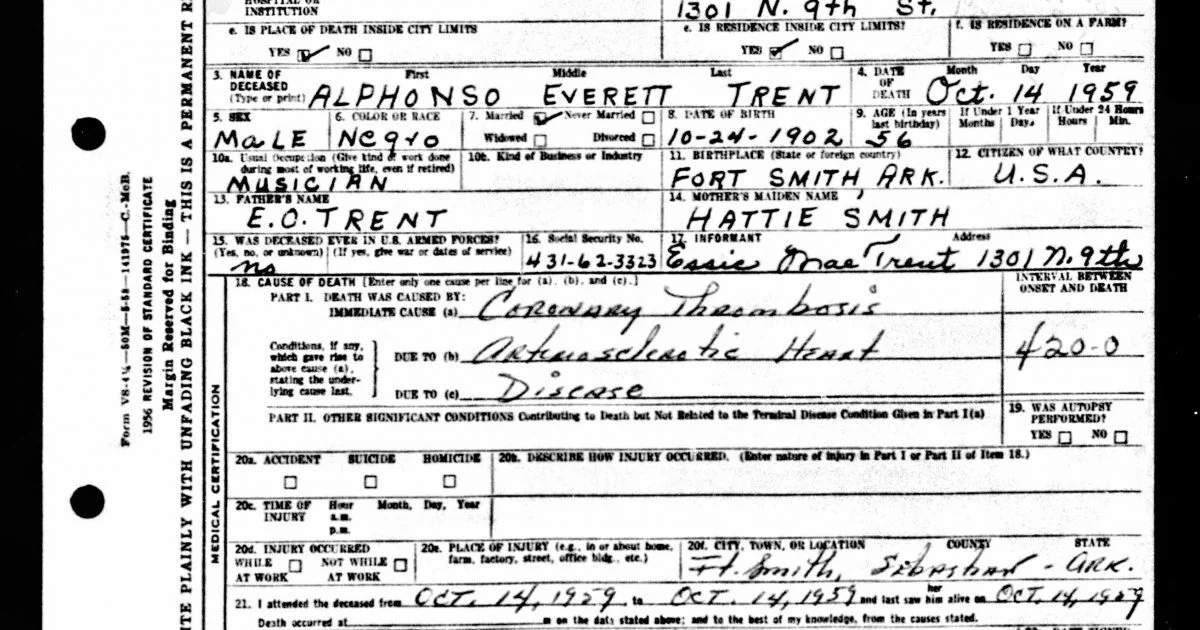 HOSPITAL OR
INSTITUTION
1301 N. 9th St.
e. IS PLACE OF DEATH INSIDE CITY LIMITS
YES NO
e. IS RESIDENCE INSIDE CITY LIMITS?
YES NO
f. IS RESIDENCE ON A FARM?
YES NO
3. NAME OF DECEASED (Type or print)
First Middle Last
ALPHONSO EVERETT TRENT
4. DATE OF DEATH
Month Day Year
Oct. 14 1959
5. SEX
MaLE
6. COLOR OR RACE
Negro
7. Married Never Married
Widowed Divorced
8. DATE OF BIRTH
10-24-1902
9. AGE (In years last birthday)
56
If Under 1 Year
Months Days
If Under 24 Hours
Hours Min.
10a. Usual Occupation (Give kind of work done
during most of working life, even if retired)
MUSICIAN
10b. Kind of Business or Industry
11. BIRTHPLACE (State or foreign country)
FORT SMITH ARK.
12. CITIZEN OF WHAT COUNTRY?
U.S.A.
13. FATHER'S NAME
E.O. TRENT
14. MOTHER'S MAIDEN NAME
HATTIE SMITH
15. WAS DECEASED EVER IN U.S. ARMED FORCES?
(Yes, no, or unknown) (If yes, give war or dates of service)
no
16. Social Security No.
431-62-3323
17. INFORMANT Address
Essie Mae Trent 1301 N. 9th
18. CAUSE OF DEATH [Enter only one cause per line for (a), (b), and (c).]
INTERVAL BETWEEN
ONSET AND DEATH
PART I. DEATH WAS CAUSED BY:
IMMEDIATE CAUSE (a) Coronary Thrombosis
Conditions, if any,
which gave rise to
above cause (a),
stating the under-
lying cause last.
DUE TO (b) Arteriosclerotic Heart
420-0
DUE TO (c) Disease
PART II. OTHER SIGNIFICANT CONDITIONS Contributing to Death but Not Related to the Terminal Disease Condition Given in Part I(a)
19. WAS AUTOPSY
PERFORMED?
YES NO
20a. ACCIDENT SUICIDE HOMICIDE
20b. DESCRIBE HOW INJURY OCCURRED. (Enter nature of injury in Part I or Part II of Item 18.)
20c. TIME OF INJURY
Hour Month, Day, Year
a.m.
p.m.
20d. INJURY OCCURRED
WHILE NOT WHILE
AT WORK AT WORK
20e. PLACE OF INJURY (e.g., in or about home,
farm, factory, street, office bldg., etc.)
20f. CITY, TOWN, OR LOCATION COUNTY STATE
Ft. Smith, Sebastian - ARK.
21. I attended the deceased from OCT. 14, 1959 to OCT. 14, 1959 and last saw her him alive on OCT. 14, 1959
Death occurred at m on the date stated above; and to the best of my knowledge, from the causes stated.
Form VS-4¼—50M—5-58—141975—C.-McB.
1956 REVISION OF STANDARD CERTIFICATE
Margin Reserved for Binding
PLAINLY WITH UNFADING BLACK INK — THIS IS A PERMANENT
MEDICAL CERTIFICATION